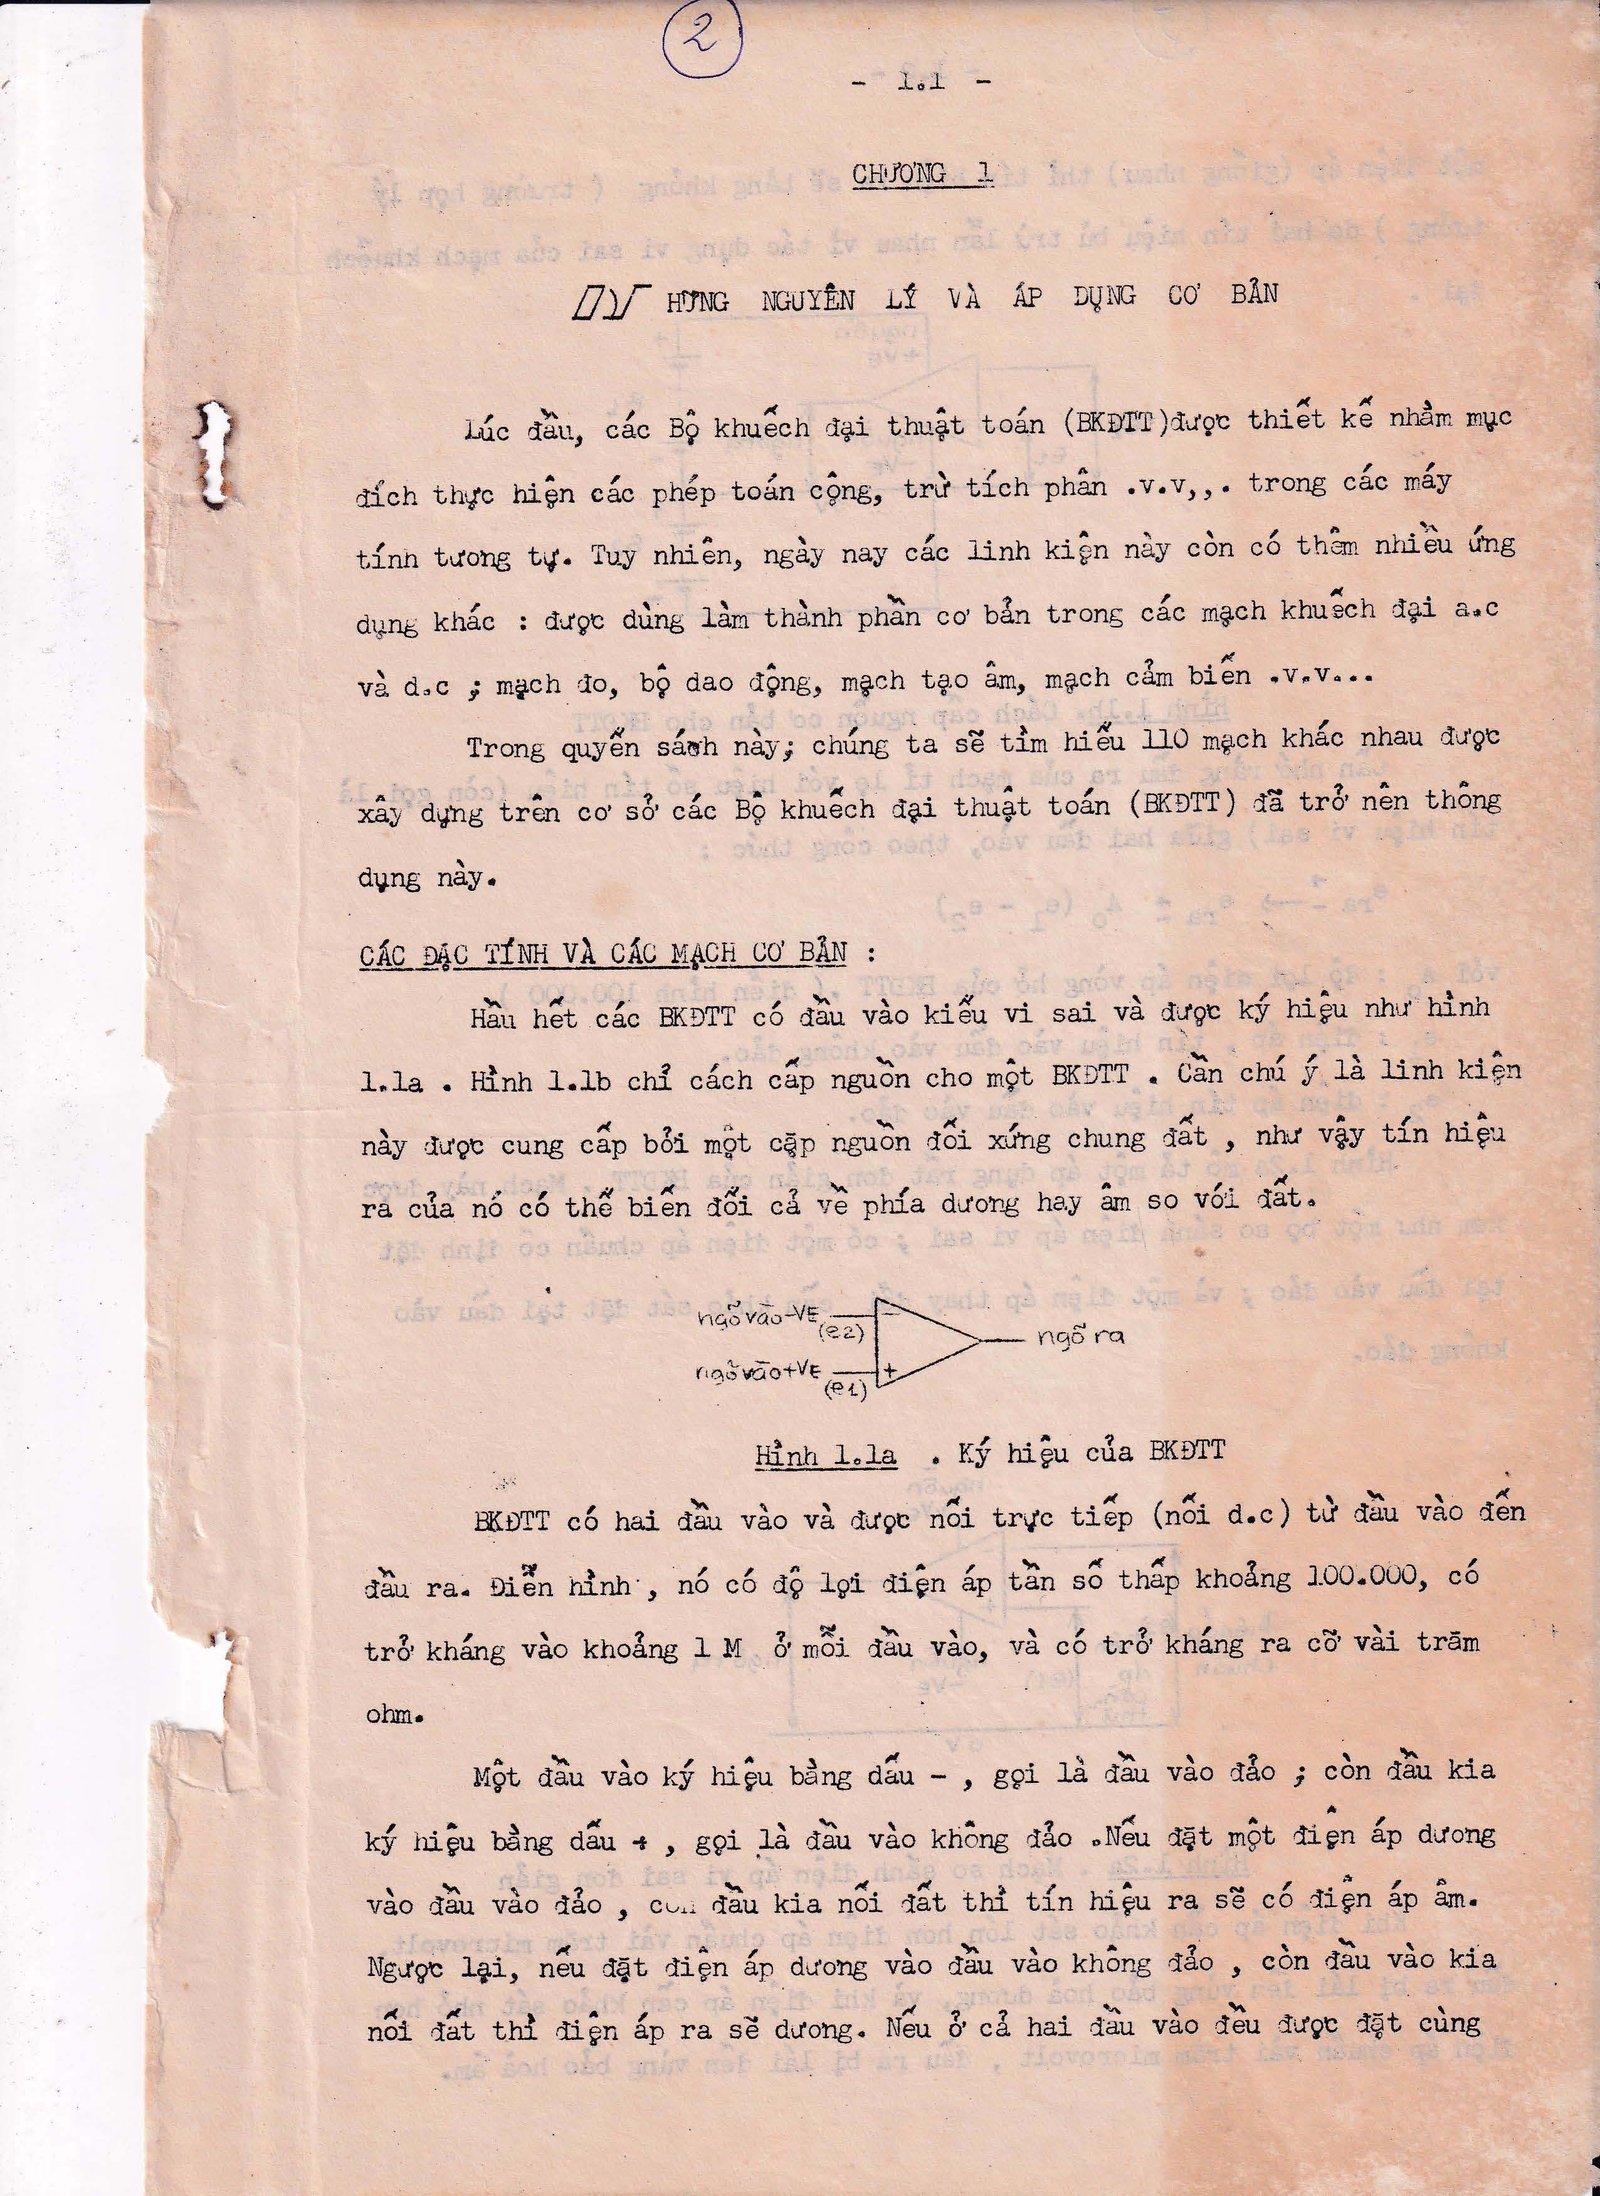 2
- 1.1 -
CHƯƠNG 1
NHỮNG NGUYÊN LÝ VÀ ÁP DỤNG CƠ BẢN
Lúc đầu, các Bộ khuếch đại thuật toán (BKĐTT)được thiết kế nhằm mục
đích thực hiện các phép toán cộng, trừ tích phân .v.v,,. trong các máy
tính tương tự. Tuy nhiên, ngày nay các linh kiện này còn có thêm nhiều ứng
dụng khác : được dùng làm thành phần cơ bản trong các mạch khuếch đại a.c
và d.c ; mạch đo, bộ dao động, mạch tạo âm, mạch cảm biến .v.v...
Trong quyển sách này; chúng ta sẽ tìm hiểu 110 mạch khác nhau được
xây dựng trên cơ sở các Bộ khuếch đại thuật toán (BKĐTT) đã trở nên thông
dụng này.
CÁC ĐẶC TÍNH VÀ CÁC MẠCH CƠ BẢN :
Hầu hết các BKĐTT có đầu vào kiểu vi sai và được ký hiệu như hình
1.1a . Hình 1.1b chỉ cách cấp nguồn cho một BKĐTT . Cần chú ý là linh kiện
này được cung cấp bởi một cặp nguồn đối xứng chung đất , như vậy tín hiệu
ra của nó có thể biến đổi cả về phía dương hay âm so với đất.
ngõ vào -VE
(e2)
-
ngõ ra
ngõ vào +VE
(e1)
+
Hình 1.1a . Ký hiệu của BKĐTT
BKĐTT có hai đầu vào và được nối trực tiếp (nối d.c) từ đầu vào đến
đầu ra. Điển hình , nó có độ lợi điện áp tần số thấp khoảng 100.000, có
trở kháng vào khoảng 1 M ở mỗi đầu vào, và có trở kháng ra cỡ vài trăm
ohm.
Một đầu vào ký hiệu bằng dấu - , gọi là đầu vào đảo ; còn đầu kia
ký hiệu bằng dấu + , gọi là đầu vào không đảo .Nếu đặt một điện áp dương
vào đầu vào đảo , còn đầu kia nối đất thì tín hiệu ra sẽ có điện áp âm.
Ngược lại, nếu đặt điện áp dương vào đầu vào không đảo , còn đầu vào kia
nối đất thì điện áp ra sẽ dương. Nếu ở cả hai đầu vào đều được đặt cùng